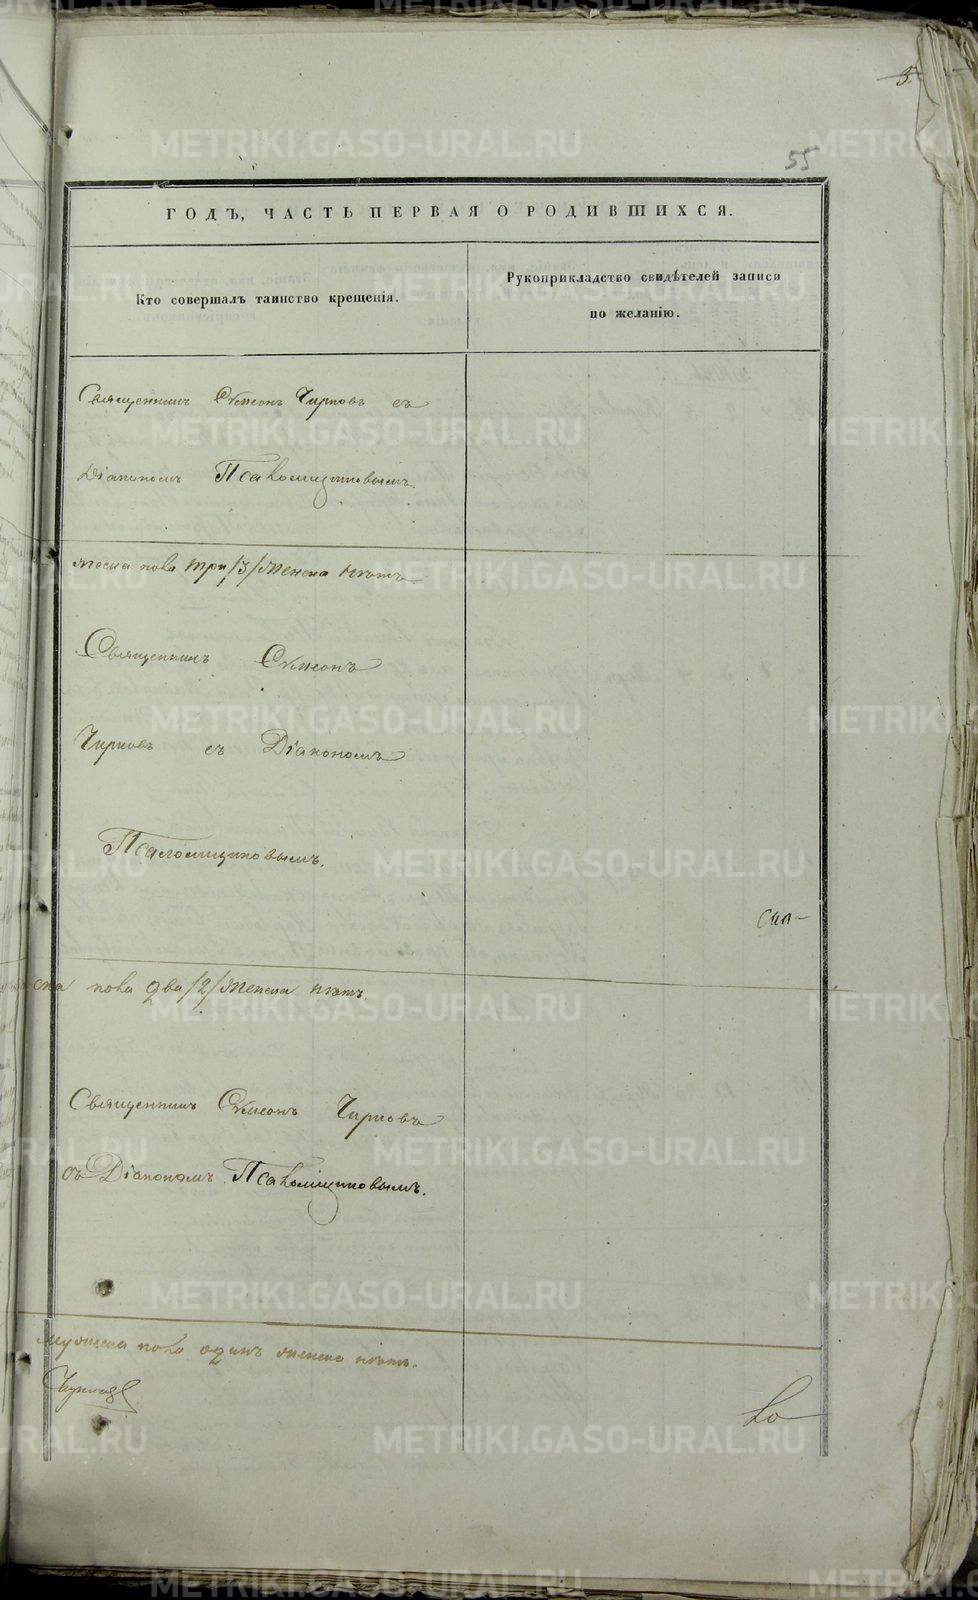 55
ГОДЪ, ЧАСТЬ ПЕРВАЯ О РОДИВШИХСЯ.
Кто совершалъ таинство крещенія.
Рукоприкладство свидѣтелей записи
по желанію.
Священникъ Симеонъ Чирковъ съ
Діакономъ Псаломщиковымъ.
пола три /3/ женска нѣтъ
Священникъ Симеонъ
Чирковъ съ Діакономъ
Псаломщиковымъ.
ска пола два /2/ женска нѣтъ.
Священникъ Симеонъ Чирковъ
съ Діакономъ Псаломщиковымъ.
мужеска пола одинъ женска нѣтъ.
METRIKI.GASO-URAL.RU